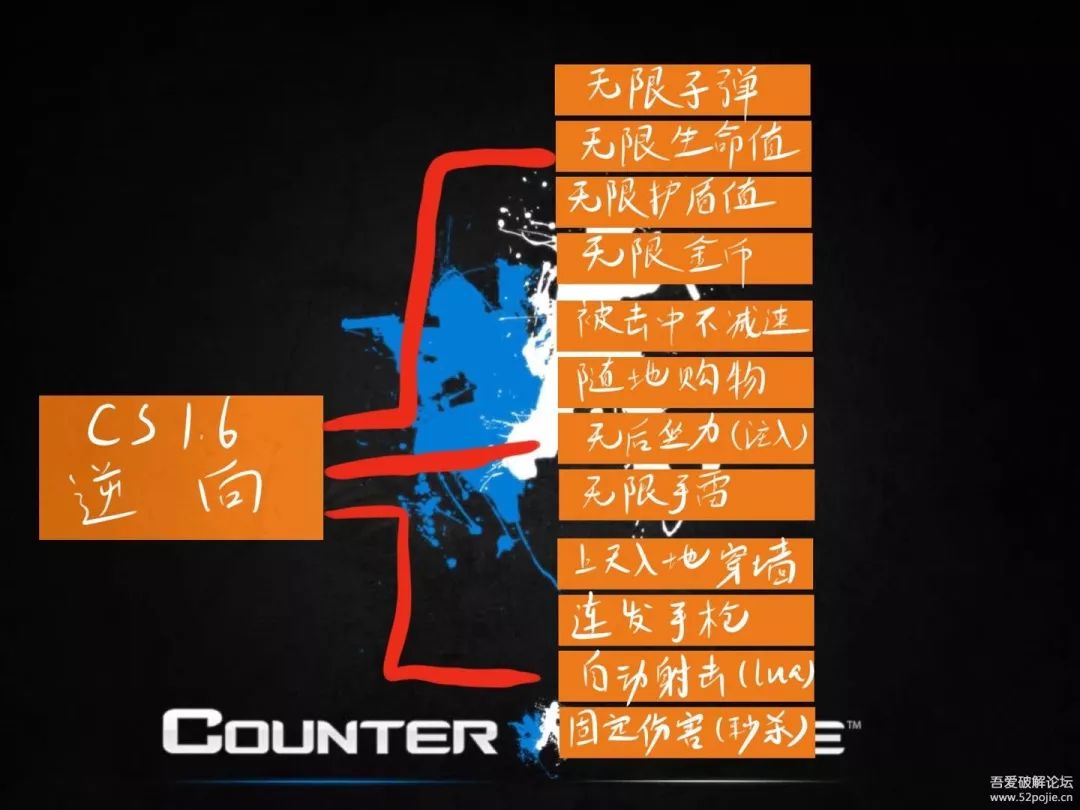 CS1.6
逆向
无限子弹
无限生命值
无限护盾值
无限金币
被击中不减速
随地购物
无后坐力(注入)
无限手雷
上天入地穿墙
连发手枪
自动射击(lua)
固定伤害(秒杀)
COUNTER
E™
吾爱破解论坛
www.52pojie.cn